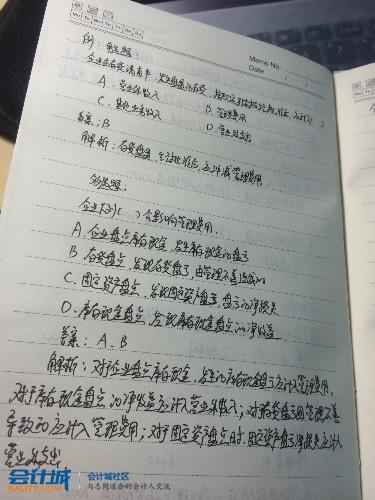 Memo No
Mo Tu We Th Fr Sa Su
Date / /
例：单选题：
企业在存货清查中，发生盘盈的存货，按规定手续报经批准后，应计入( )
A. 营业外收入 B. 管理费用
C. 其他业务收入 D. 营业外支出
答案：B
解析：存货盘盈，经批准后，应冲减管理费用.
多选题：
企业下列( )会影响管理费用.
A. 企业盘点库存现金，发生库存现金的盘亏
B. 存货盘点，发现存货盘亏，由管理不善造成的
C. 固定资产盘点，发现固定资产盘亏，盘亏的净损失
D. 库存现金盘点，发现库存现金盘点的净收益
答案：A.B
解析：对于企业盘点库存现金，发生的库存现金盘亏应计入管理费用，
对于库存现金盘点的净收益应计入营业外收入；对存货盘亏的管理不善
导致的应计入管理费用；对于固定资产盘点时，固定资产盘亏净损失应计入
营业外支出
会计城
KJCITY.COM
会计城社区
与志同道合的会计人交流